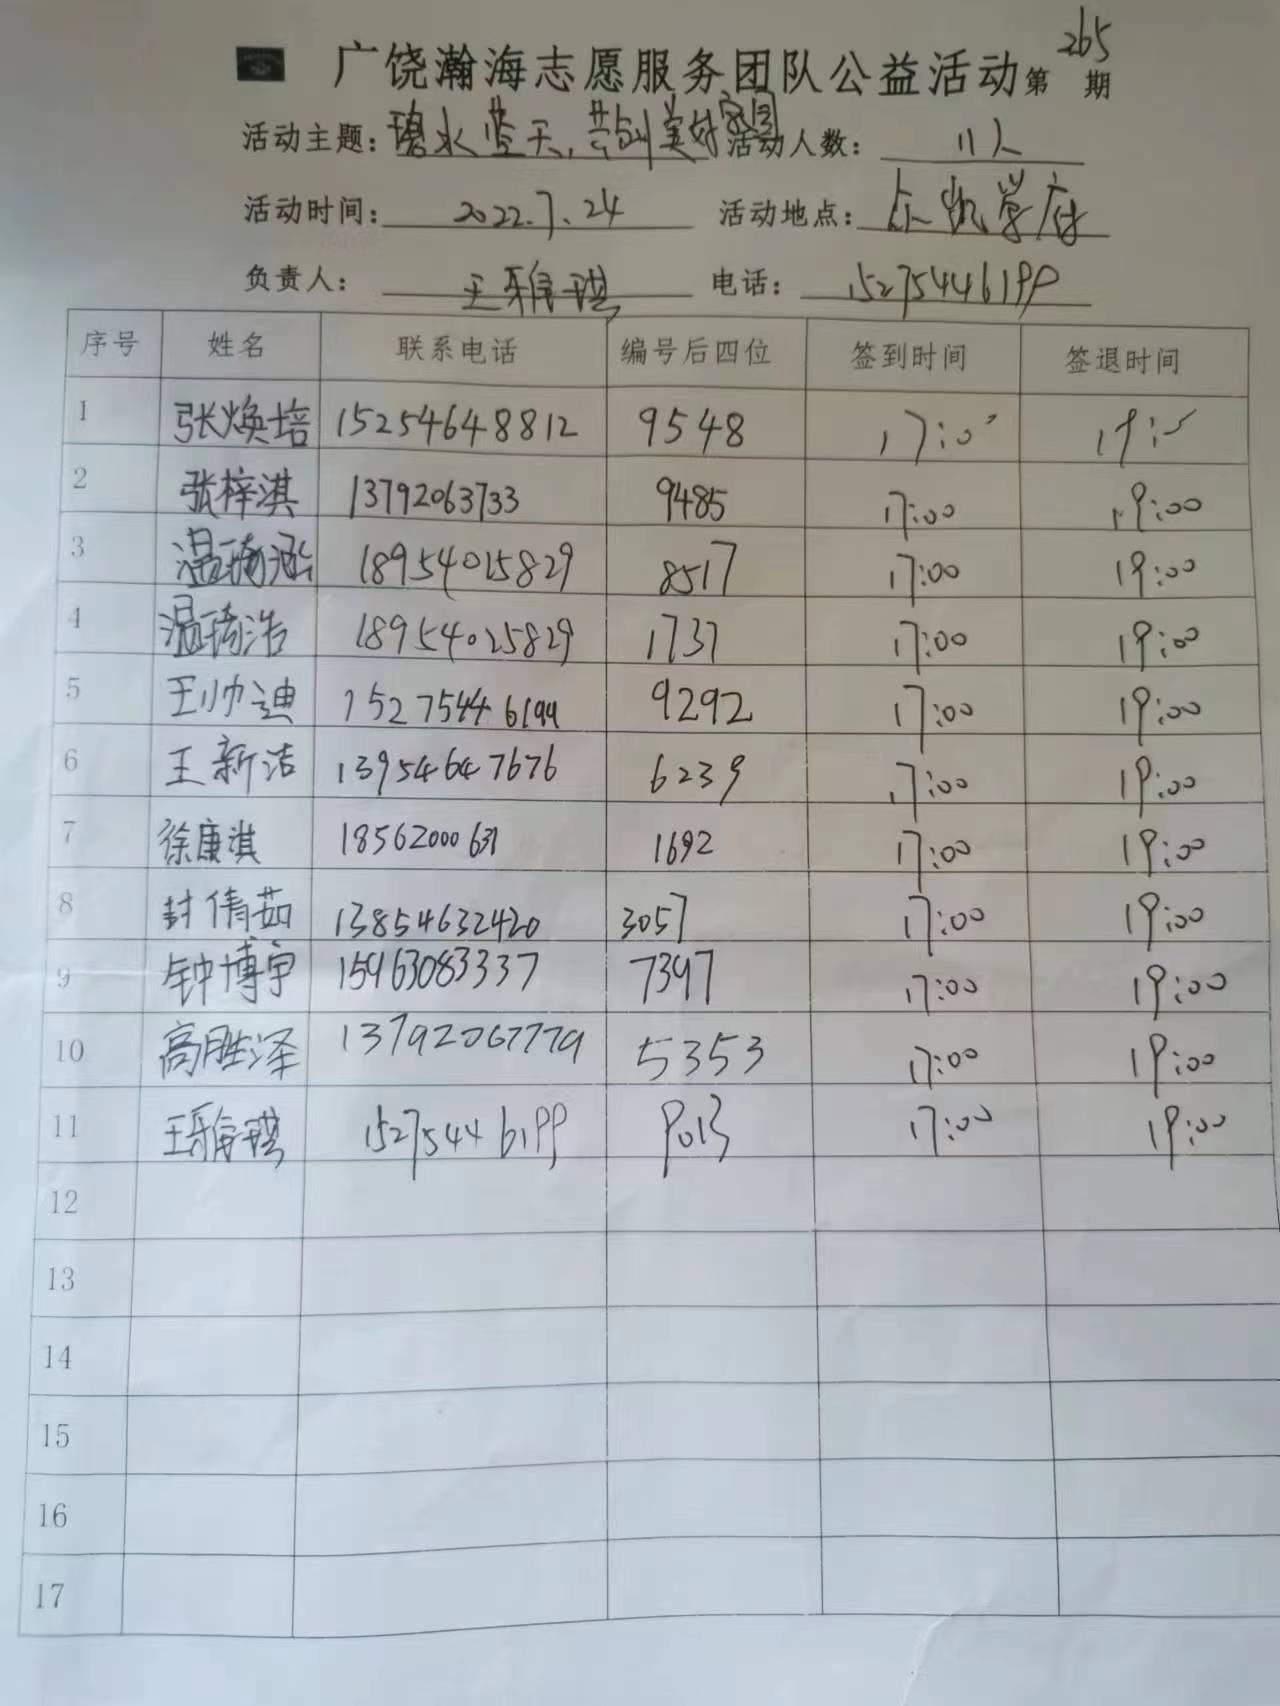 广饶瀚海志愿服务团队公益活动第265期
活动主题：碧水蓝天，共创美好家园 活动人数：11人
活动时间：2022.7.24 活动地点：东凯学府
负责人：王雅琪 电话：15275446199
序号 姓名 联系电话 编号后四位 签到时间 签退时间
1 张焕培 15254648812 9548 17:00 19:
2 张梓淇 13792063733 9485 17:00 19:00
3 温琦泓 18954015829 8517 17:00 19:00
4 温琦浩 18954025829 1737 17:00 19:00
5 王帅迪 15275446199 9292 17:00 19:00
6 王新洁 13954647676 6239 17:00 19:00
7 徐康淇 18562000631 1692 17:00 19:00
8 封倩茹 13854632420 3057 17:00 19:00
9 钟博宇 15963083337 7397 17:00 19:00
10 高胜泽 13792067779 5353 17:00 19:00
11 王雅琪 15275446199 9013 17:00 19:00
12
13
14
15
16
17